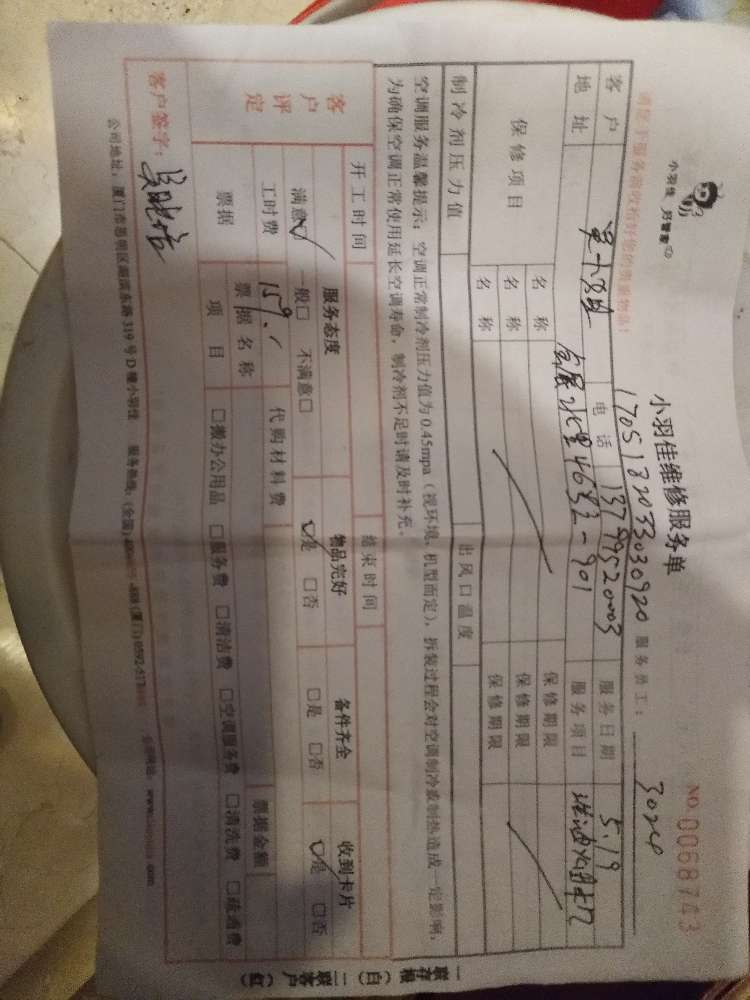 小羽佳 好管家
小羽佳维修服务单
NO.0068743
请您于服务前收检好您的贵重物品!
1705182033030920 服务员工: 3024
客户 电话 13799520003 服务日期 5.19
地址 46号之-901 服务项目
保修项目 名称 保修期限
名称 保修期限
名称 保修期限
制冷剂压力值 出风口温度
空调服务温馨提示:空调正常制冷剂压力值为0.45mpa(视环境、机型而定),拆装过程会对空调制冷或制热造成一定影响,
为确保空调正常使用延长空调寿命,制冷剂不足时请及时补充。
开工时间 结束时间
客户评定 服务态度 物品完好 备件齐全 收到卡片
满意☑ 一般□ 不满意□ ☑是 □否 □是 □否 ☑是 □否
工时费 159. 代购材料费
票据 票据名称 票据金额
项目 □搬办公用品 □服务费 □清洁费 □空调服务费 □清洗费 □疏通费
客户签字:
公司地址:厦门市思明区湖滨东路319号D幢小羽佳 服务热线:(全国) (厦门)0592-517
一联存根(白) 二联客户(红)